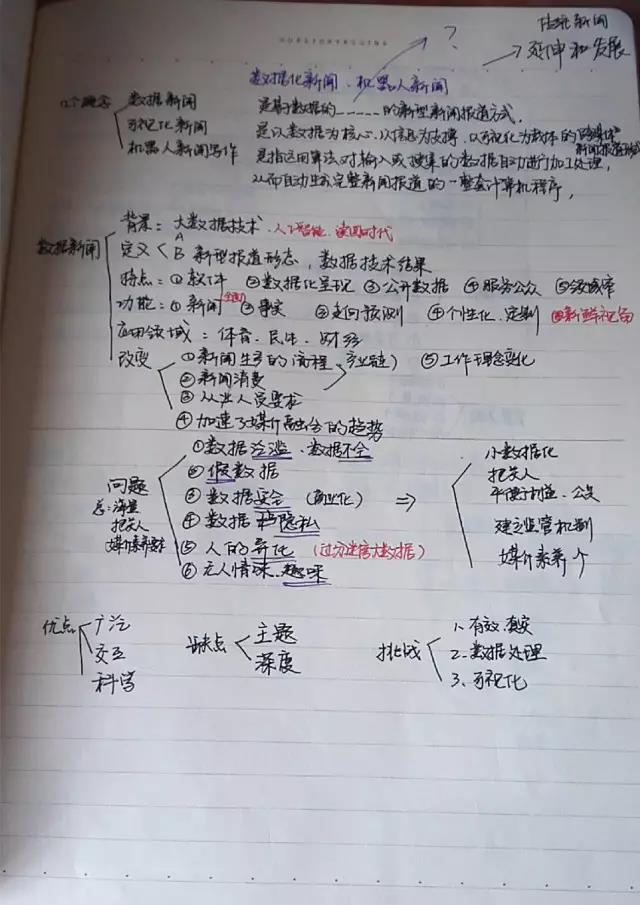 传统新闻
?
→延伸和发展
数据化新闻、机器人新闻
几个概念
数据新闻 是基于数据的______的新型新闻报道方式.
可视化新闻 是以数据为核心,以信息为支撑,以可视化为载体的跨媒体新闻报道形式
机器人新闻写作 是指运用算法对输入或搜集的数据自动进行加工处理,
从而自动生成完整新闻报道的一整套计算机程序,
数据新闻
背景:大数据技术.人工智能、读图时代
定义 A
B 新型报道形态,数据技术结果
特点:①软件 ②数据化呈现 ③公开数据 ④服务公众
功能:①新闻 ②事实 ③走向预测 ④个性化.定制 ⑤新鲜视角
应用领域:体育.民生.财经
改变 ①新闻生产的流程 产业链) ⑤工作理念变化
②新闻消费
③从业人员要求
④加速了媒介融合的趋势
问题
总:海量
把关人
媒介素养要求
①数据泛滥、数据不全
②假数据
③数据安全 (商业化) ⇒
④数据 隐私
⑤人的异化 (过分迷信大数据)
⑥无人情味、趣味
小数据化
把关人
平衡 利益、公众
建立监管机制
媒介素养 个
优点 广泛
交互
科学
缺点 主题
深度
挑战 1.有效.真实
2.数据处理
3、可视化